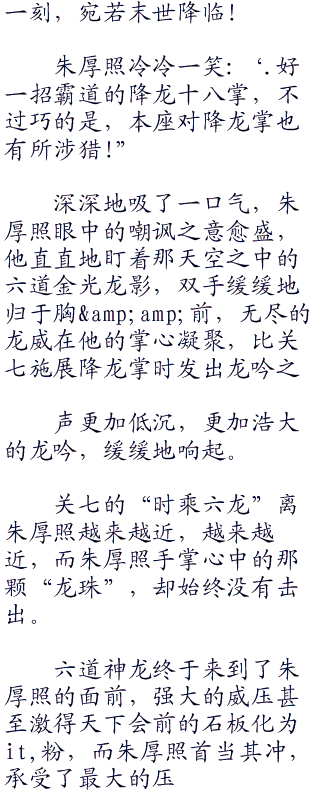 一刻，宛若末世降临！
朱厚照冷冷一笑：‘.好
一招霸道的降龙十八掌，不
过巧的是，本座对降龙掌也
有所涉猎!”
深深地吸了一口气，朱
厚照眼中的嘲讽之意愈盛，
他直直地盯着那天空之中的
六道金光龙影，双手缓缓地
归于胸&amp;amp;前，无尽的
龙威在他的掌心凝聚，比关
七施展降龙掌时发出龙吟之
声更加低沉，更加浩大
的龙吟，缓缓地响起。
关七的“时乘六龙”离
朱厚照越来越近，越来越
近，而朱厚照手掌心中的那
颗“龙珠”，却始终没有击
出。
六道神龙终于来到了朱
厚照的面前，强大的威压甚
至激得天下会前的石板化为
it,粉，而朱厚照首当其冲，
承受了最大的压